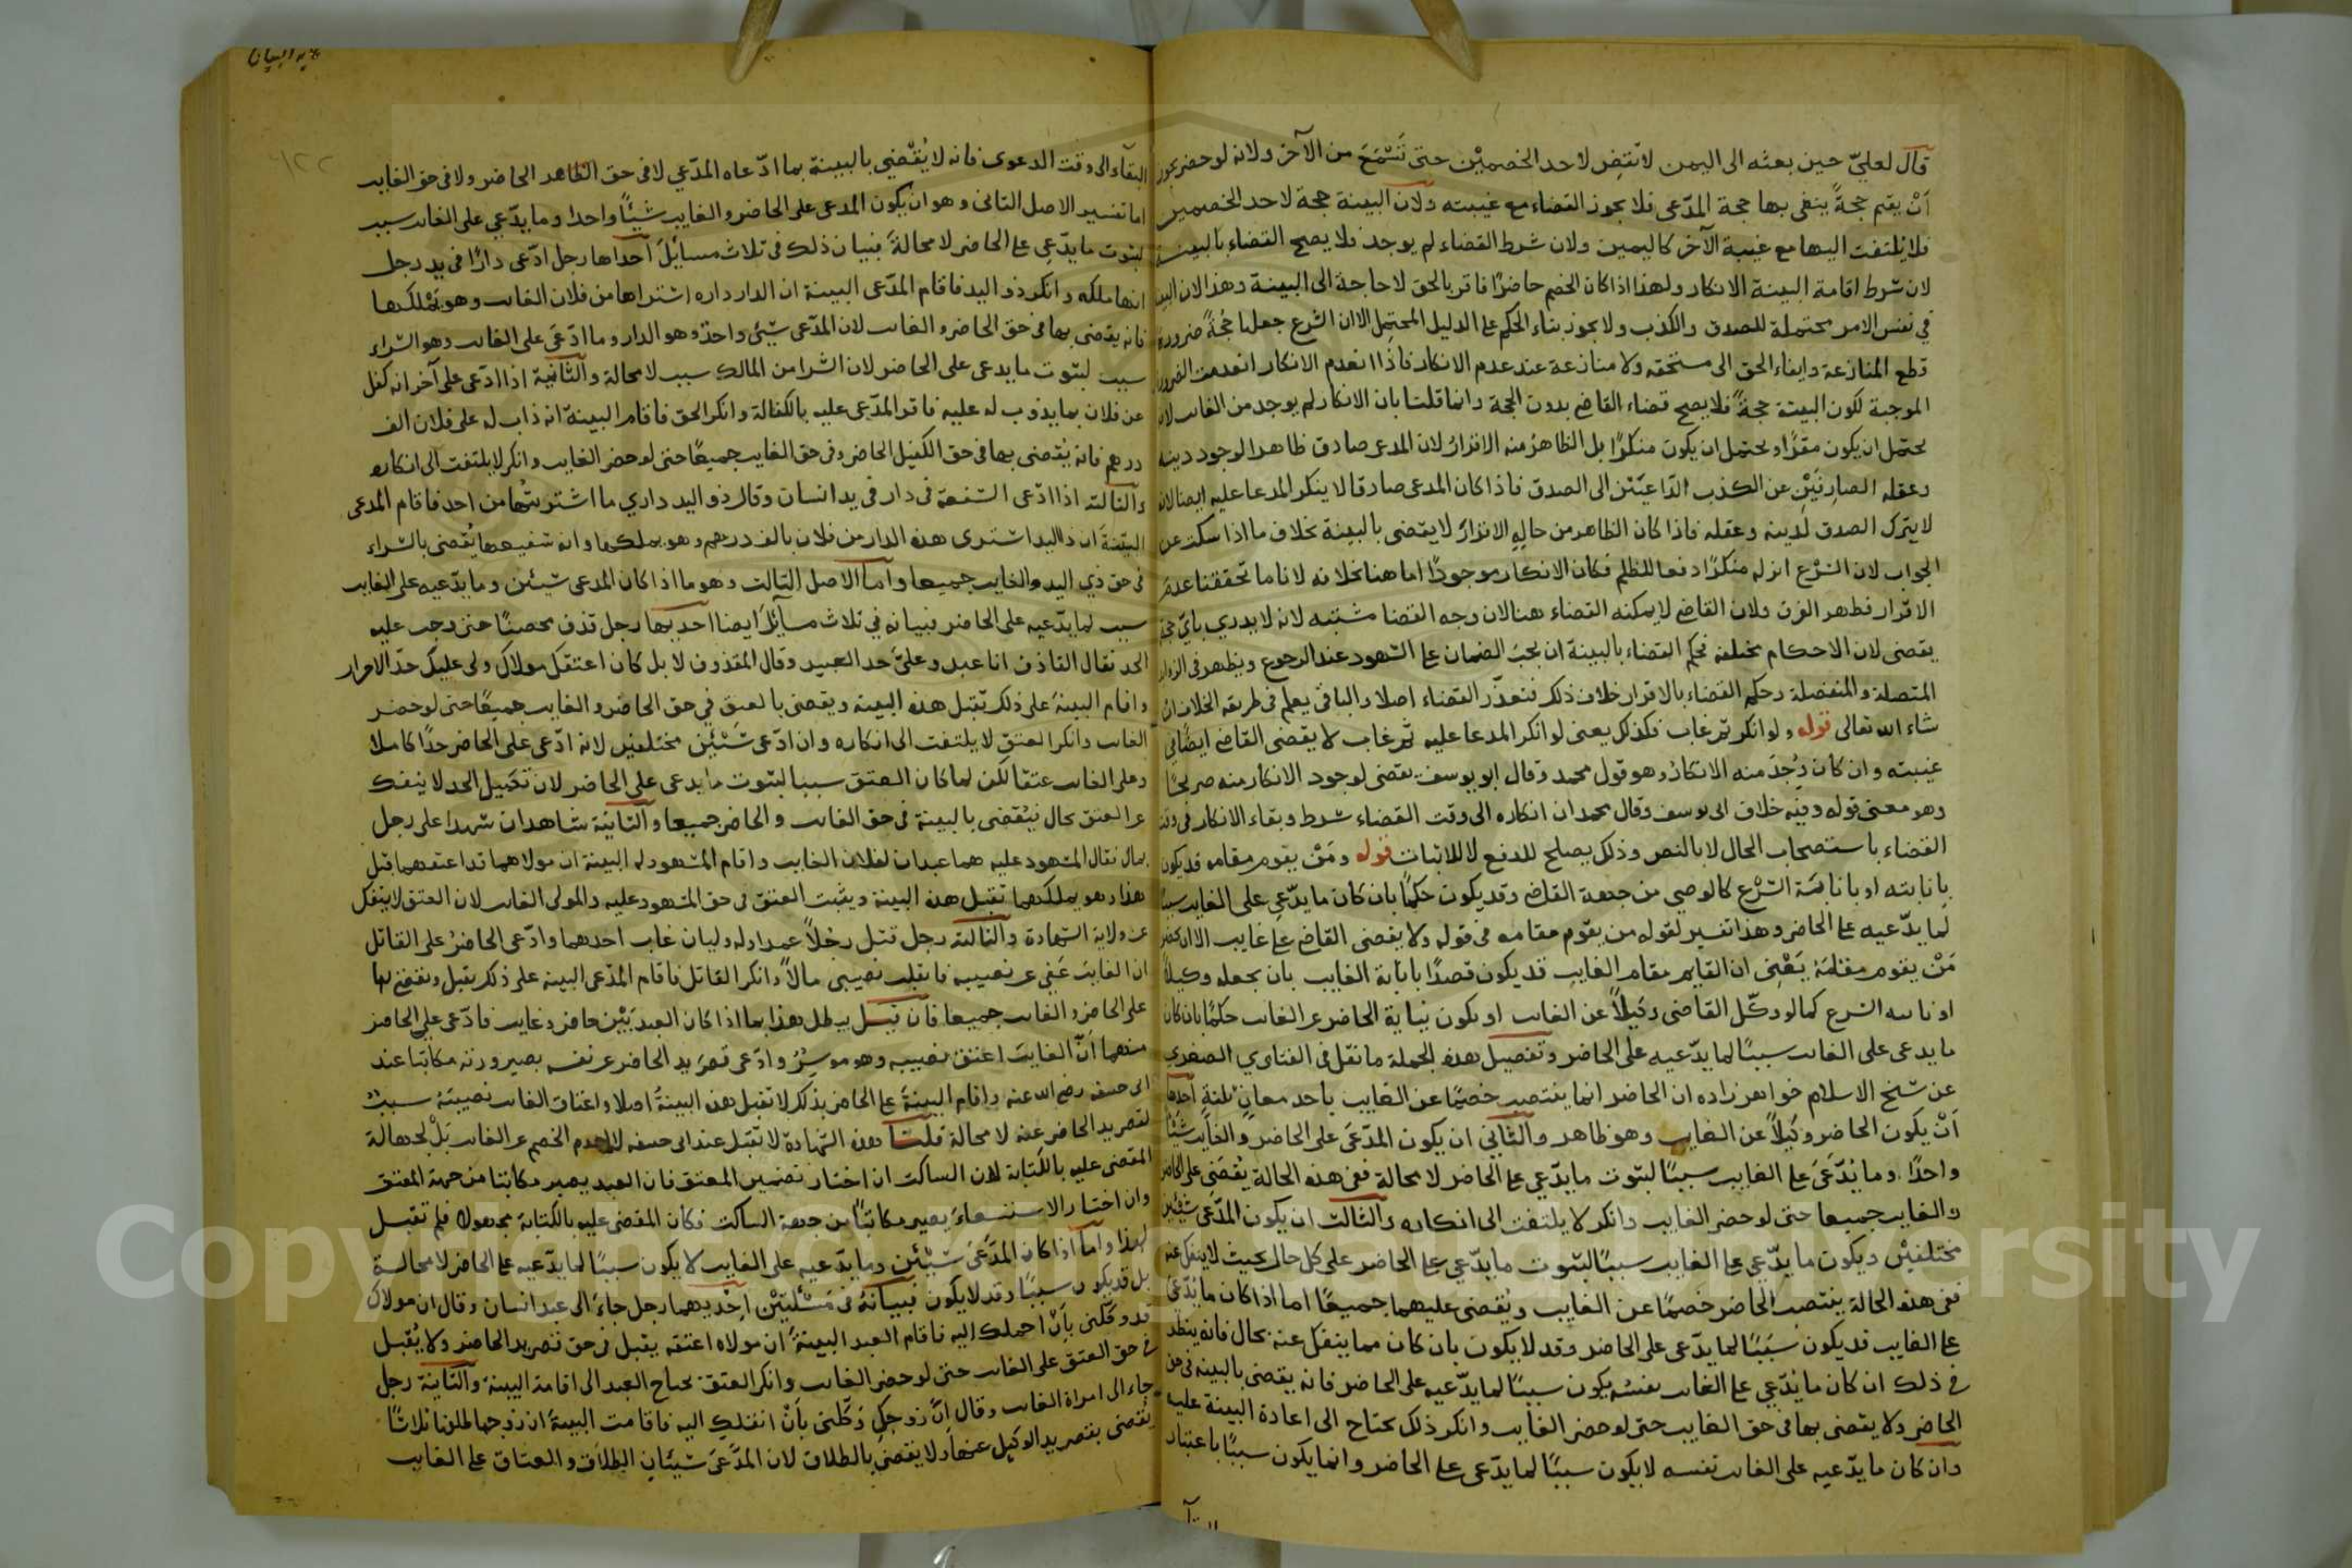 قال لعليّ حين بعثه الى اليمن لا تقض لاحد الخصمين حتى تسمع من الآخر ولانه لو حضر يجوز
أن يقيم حجةً ينفى بها حجة المدّعى فلا يجوز القضاء مع غيبته ولان البينة حجة لاحد الخصمين
فلا يلتفت اليها مع غيبة الآخر كاليمين ولان شرط القضاء لم يوجد فلا يصح القضاء بالبينة
لان شرط اقامة البينة الانكار ولهذا اذا كان الخصم حاضرًا فاقر بالحق لا حاجة الى البينة وهذا لان البينة
في نفس الامر محتملة للصدق والكذب ولا يجوز بناء الحكم على الدليل المحتمل الا ان الشرع جعلها حجةً ضرورة
قطع المنازعة وايفاء الحق الى مستحقه ولا منازعة عند عدم الانكار فاذا انعدم الانكار انعدمت الضرورة
الموجبة لكون البينة حجةً فلا يصح قضاء القاضى بدون الحجة وانما قلنا بان الانكار لم يوجد من الغائب لانه
يحتمل ان يكون مقرًا ويحتمل ان يكون منكرًا بل الظاهر منه الاقرار لان المدعى صادق ظاهرا لوجود دينه
وعقله الصارفين عن الكذب الداعيين الى الصدق فاذا كان المدعى صادقا لا ينكر المدعا عليه ايضا لانه
لا يترك الصدق لدينه وعقله فاذا كان الظاهر من حاله الاقرار لا يقضى بالبينة بخلاف ما اذا سكت عن
الجواب لان الشرع انزله منكرًا دفعا للظلم فكان الانكار موجودًا اما هنا بخلافه لانا ما تحققنا عدم
الاقرار فظهر الفرق ولان القاضى لا يمكنه القضاء هنا لان وجه القضا مشتبه لانه لا يدرى باىّ حجة
يقضى لان الاحكام مختلفة فحكم القضاء بالبينة ان يجب الضمان على الشهود عند الرجوع ويظهر فى الزوائد
المتصلة والمنفصلة وحكم القضاء بالاقرار خلاف ذلك فتعذر القضاء اصلا والباقى يعلم فى طريقة الخلاف ان
شاء الله تعالى قوله ولو انكر ثم غاب فكذلك يعنى لو انكر المدعا عليه ثم غاب لا يقضى القاضى ايضًا فى
غيبته وان كان وُجد منه الانكار وهو قول محمد وقال ابو يوسف يقضى لوجود الانكار منه صريحًا
وهو معنى قوله وفيه خلاف ابى يوسف وقال محمد ان انكاره الى وقت القضاء شرط وبقاء الانكار فى وقت
القضاء باستصحاب الحال لا بالنص وذلك يصلح للدفع لا للاثبات قوله ومن يقوم مقامه قد يكون
بانابته او بانابة الشرع كالوصى من جهة القاضى وقد يكون حكمًا بان كان ما يدّعى على الغايب سببًا
لما يدّعيه على الحاضر وهذا تفسير لقوله من يقوم مقامه فى قوله ولا يقضى القاضى على غايب الا ان يحضر
من يقوم مقامه يعنى ان القايم مقام الغايب قد يكون قصدًا بانابة الغايب بان يجعله وكيلاً
او نابه الشرع كما لو وكّل القاضى وكيلاً عن الغايب او يكون نيابة الحاضر عن الغائب حكمًا بان كان
ما يدعى على الغائب سببًا لما يدّعيه على الحاضر وتفصيل هذه الجملة ما نقل فى الفتاوى الصغرى
عن شيخ الاسلام خواهرزاده ان الحاضر انما ينتصب خصمًا عن الغايب باحد معانٍ ثلثة احدها
أن يكون الحاضر وكيلاً عن الغايب وهو ظاهر والثانى ان يكون المدّعى على الحاضر والغايب شيئًا
واحدًا وما يُدّعى على الغايب سببًا لثبوت ما يدّعى على الحاضر لا محالة ففى هذه الحالة يُقضى على الحاضر
والغايب جميعا حتى لو حضر الغايب وانكر لا يلتفت الى انكاره والثالث ان يكون المدّعى شيئين
مختلفين ويكون ما يدّعى على الغايب سببًا لثبوت ما يدّعى على الحاضر على كل حال بحيث لا ينفك عنه
ففى هذه الحالة ينتصب الحاضر خصمًا عن الغايب ويُقضى عليهما جميعًا اما اذا كان ما يُدّعى
على الغايب قد يكون سببًا لما يدّعى على الحاضر وقد لا يكون بان كان مما ينفك عنه بحال فانه ينظر
فى ذلك ان كان ما يُدّعى على الغائب نفسه يكون سببًا لما يدّعيه على الحاضر فانه يقضى بالبينة فى حق
الحاضر ولا يقضى بها فى حق الغايب حتى لو حضر الغايب وانكر ذلك يحتاج الى اعادة البينة عليه
وان كان ما يدّعيه على الغائب نفسه لا يكون سببًا لما يدّعى على الحاضر وانما يكون سببًا باعتبار
البقاء الى وقت الدعوى فانه لا يُقضى بالبينة بما ادّعاه المدّعى لا فى حق الحاضر ولا فى حق الغايب
اما تفسير الاصل الثانى وهو ان يكون المدعى على الحاضر والغايب شيئًا واحدا وما يدّعى على الغائب سبب
لثبوت ما يدّعى على الحاضر لا محالةً فبيان ذلك فى ثلاث مسايل احداها رجل ادّعى دارًا فى يد رجل
انها ملكه وانكر ذو اليد فاقام المدّعى البينة ان الدار داره اشتراها من فلان الغائب وهو يملكها
فانه يقضى بها فى حق الحاضر والغائب لان المدّعى شيئ واحد وهو الدار وما ادّعى على الغائب وهو الشراء
سبب لثبوت ما يدعى على الحاضر لان الشرا من المالك سبب لا محالة والثانية اذا ادّعى على آخر انه كفل
عن فلان بما يذوب له عليه فاقر المدّعى عليه بالكفالة وانكر الحق فاقام البينة انه ذاب له على فلان الف
درهم فانه يُقضى بها فى حق الكفيل الحاضر وفى حق الغايب جميعًا حتى لو حضر الغايب وانكر لا يلتفت الى انكاره
والثالثة اذا ادّعى الشفعة فى دار فى يد انسان وقال ذو اليد دارى ما اشتريتُها من احد فاقام المدعى
البيّنة ان ذا اليد اشترى هذه الدار من فلان بالف درهم وهو يملكها وانه شفيعها يُقضى بالشراء
فى حق ذى اليد والغايب جميعا واما الاصل الثالث وهو ما اذا كان المدعى شيئين وما يدّعيه على الغايب
سبب لما يدّعيه على الحاضر فبيانه فى ثلاث مسائل ايضا احديها رجل قذف محصنًا حتى وجب عليه
الحد فقال القاذف انا عبد وعلىّ حد العبيد وقال المقذوف لا بل كان اعتقك مولاك ولى عليك حدّ الاحرار
واقام البينة على ذلك تقبل هذه البينة ويقضى بالعتق فى حق الحاضر والغايب جميعًا حتى لو حضر
الغائب وانكر العتق لا يلتفت الى انكاره وان ادّعى شيئين مختلفين لانه ادّعى على الحاضر حدًا كاملا
وعلى الغائب عتقا لكن لما كان العتق سببا لثبوت ما يدعى على الحاضر لان تكميل الحد لا ينفك
عن العتق بحال فيُقضى بالبينة فى حق الغائب والحاضر جميعا والثانية شاهدان شهدا على رجل
بمال فقال المشهود عليه هما عبدان لفلان الغايب واقام المشهود له البينة ان مولاهما قد اعتقهما قبل
هذا وهو يملكهما تقبل هذه البينة ويثبت العتق فى حق المشهود عليه والمولى الغائب لان العتق لا ينفك
عن ولاية الشهادة والثالثة رجل قتل رجلاً عمدا وله وليان غاب احدهما وادّعى الحاضر على القاتل
ان الغايب عفى عن نصيبه فانقلب نصيبى مالاً وانكر القاتل فاقام المدّعى البينة على ذلك يقبل ويقضى بها
على الحاضر والغائب جميعا فان قيل يبطل هذا بما اذا كان العبد بين حاضر وغايب فادّعى على الحاضر
منهما انّ الغايب اعتق نصيبه وهو موسر وادّعى قصر يد الحاضر عن نفسه بصيرورته مكاتبا عند
ابى حنيفة رضى الله عنه واقام البينة على الحاضر بذلك لا تقبل هذه البينة اصلا واعتاق الغائب نصيبه سبب
لقصر يد الحاضر عنه لا محالة قلنا هذه الشهادة لا تقبل عند ابى حنيفة لا لعدم الخصم عن الغائب بل لجهالة
المقضى عليه بالكتابة لان الساكت ان اختار تضمين المعتق فان العبد يصير مكاتبا من جهة المعتق
وان اختار الاستسعاء يصير مكاتبًا من جهة الساكت فكان المقضى عليه بالكتابة مجهولا فلم تقبل
لهذا واما اذا كان المدّعى شيئين وما يدّعيه على الغايب لا يكون سببًا لما يدّعيه على الحاضر لا محالة
بل قد يكون سببًا وقد لا يكون فبيانه فى مسئلتين احديهما رجل جاء الى عبد انسان وقال ان مولاك
قد وكلنى بأن احملك اليه فاقام العبد البينة ان مولاه اعتقه يقبل فى حق قصر يد الحاضر ولا يُقبل
فى حق العتق على الغائب حتى لو حضر الغائب وانكر العتق يحتاج العبد الى اقامة البينة والثانية رجل
جاء الى امراة الغائب وقال انّ زوجك وكّلنى بأن انقلك اليه فاقامت البينة ان زوجها طلقها ثلاثًا
يُقضى بقصر يد الوكيل عنها ولا يقضى بالطلاق لان المدّعى شيئان الطلاق والعتاق على الغايب